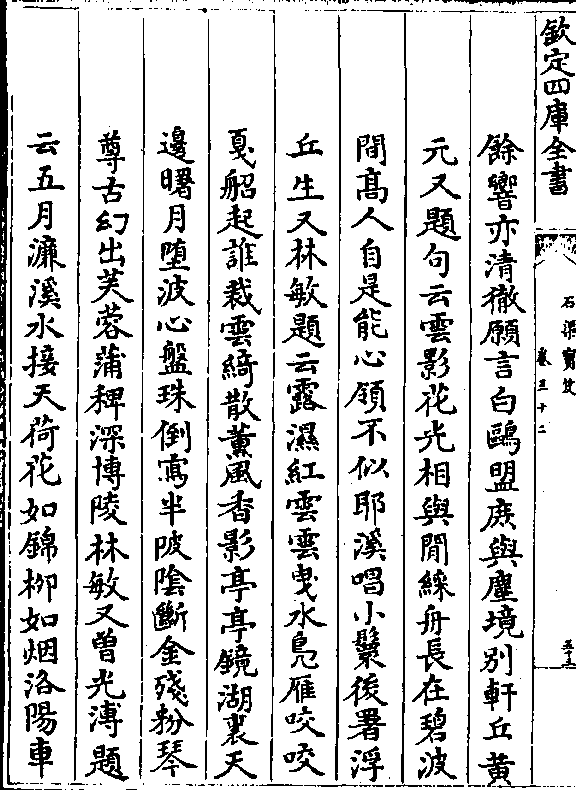 欽定四庫全書
石渠寶笈
卷三十二
餘響亦清徹願言白鷗盟庶與塵境别軒丘黄
元又題句云雲影花光相與閒綵舟長在碧波
間高人自是能心領不似耶溪唱小鬟後署浮
丘生又林敏題云露濕紅雲雲曳水鳬雁咬咬
戛船起誰裁雲綺散薰風香影亭亭鏡湖裏天
邊曙月墮波心盤珠倒瀉半陂陰斷金殘粉琴
尊古幻出芙蓉蒲稗深博陵林敏又曾光溥題
云五月濂溪水接天荷花如錦栁如烟洛陽車